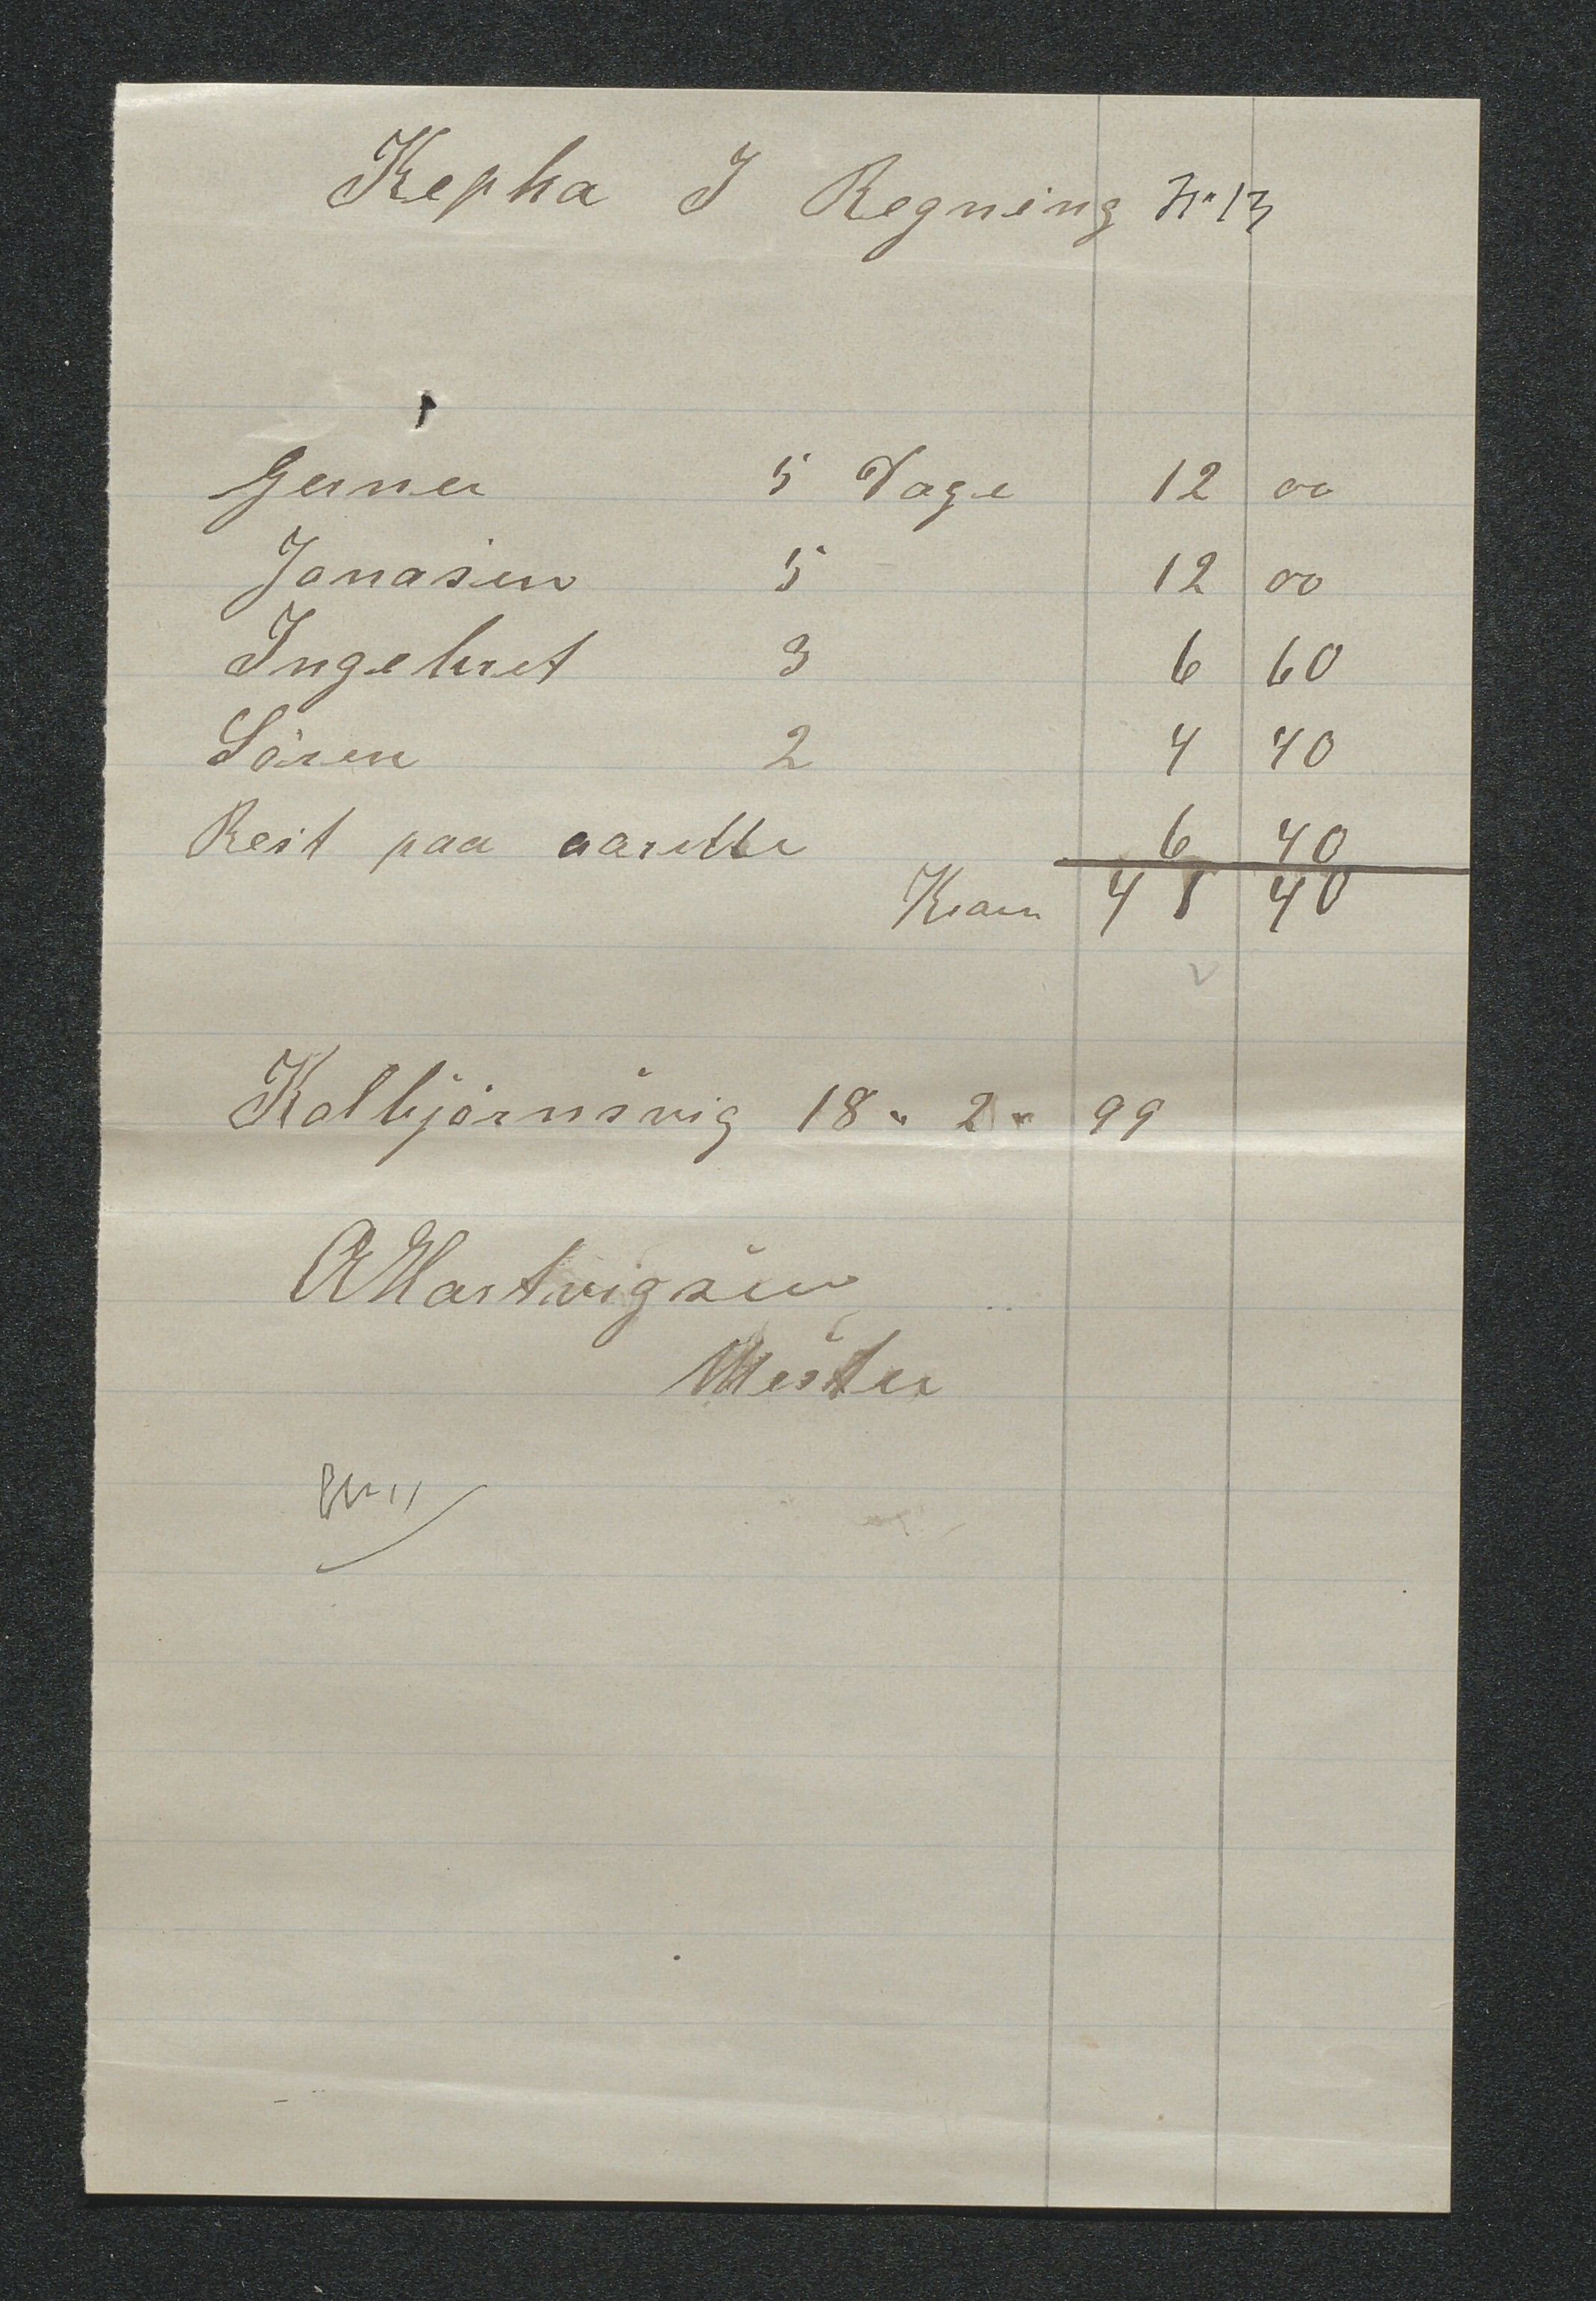 Kepha I Regning No 13
Gerner 5 Dage 12 00
Jonasen 5 12 00
Ingebret 3 6 60
Sören 2 4 40
Rest paa 6 40
41 40
Kolbjörnsvig 18 - 2 - 99
AHartvigsen
Mester